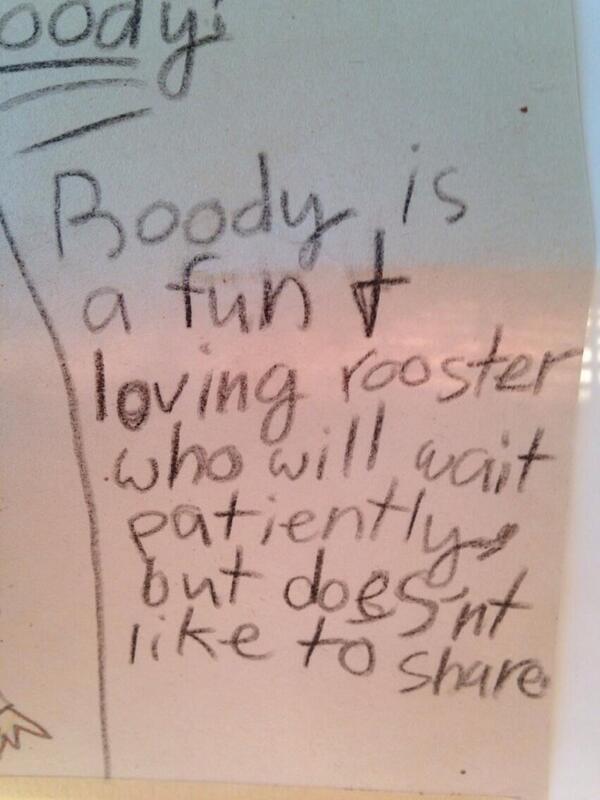 oody:
Boody is
a fun +
loving rooster
who will wait
patiently,
but does'nt
like to share.